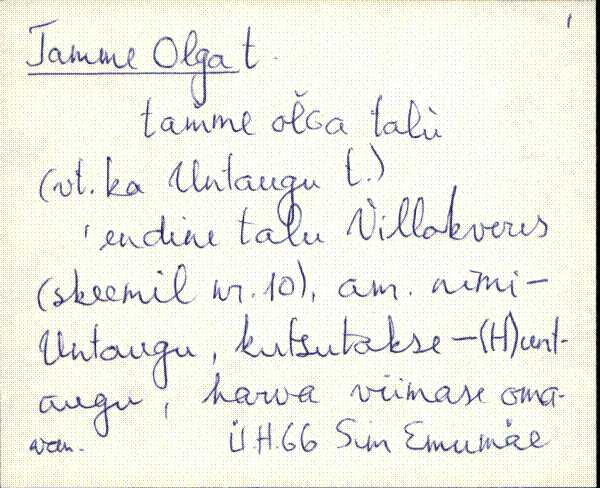 Tamme Olga t.
tam̆me ol̆Ga talù
(vt. ka Untaugu t.)
'endine talu Villakveres
(skeemil nr. 10), am. nimi –
Untaugu, kutsutakse – (H)unt-
augu, harva viimase oma-
Ü.H. 66 Sim Emumäe